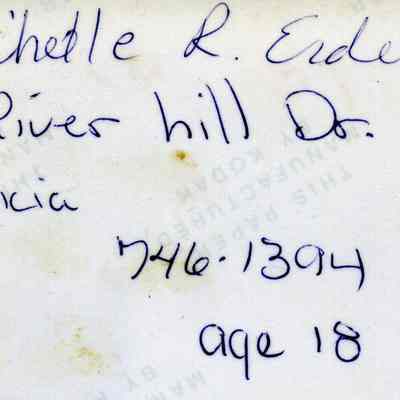 chelle R. Erde
River hill Dr.
kia
746-1394
age 18
THIS PAPER
MANUFACTURED
BY KODAK